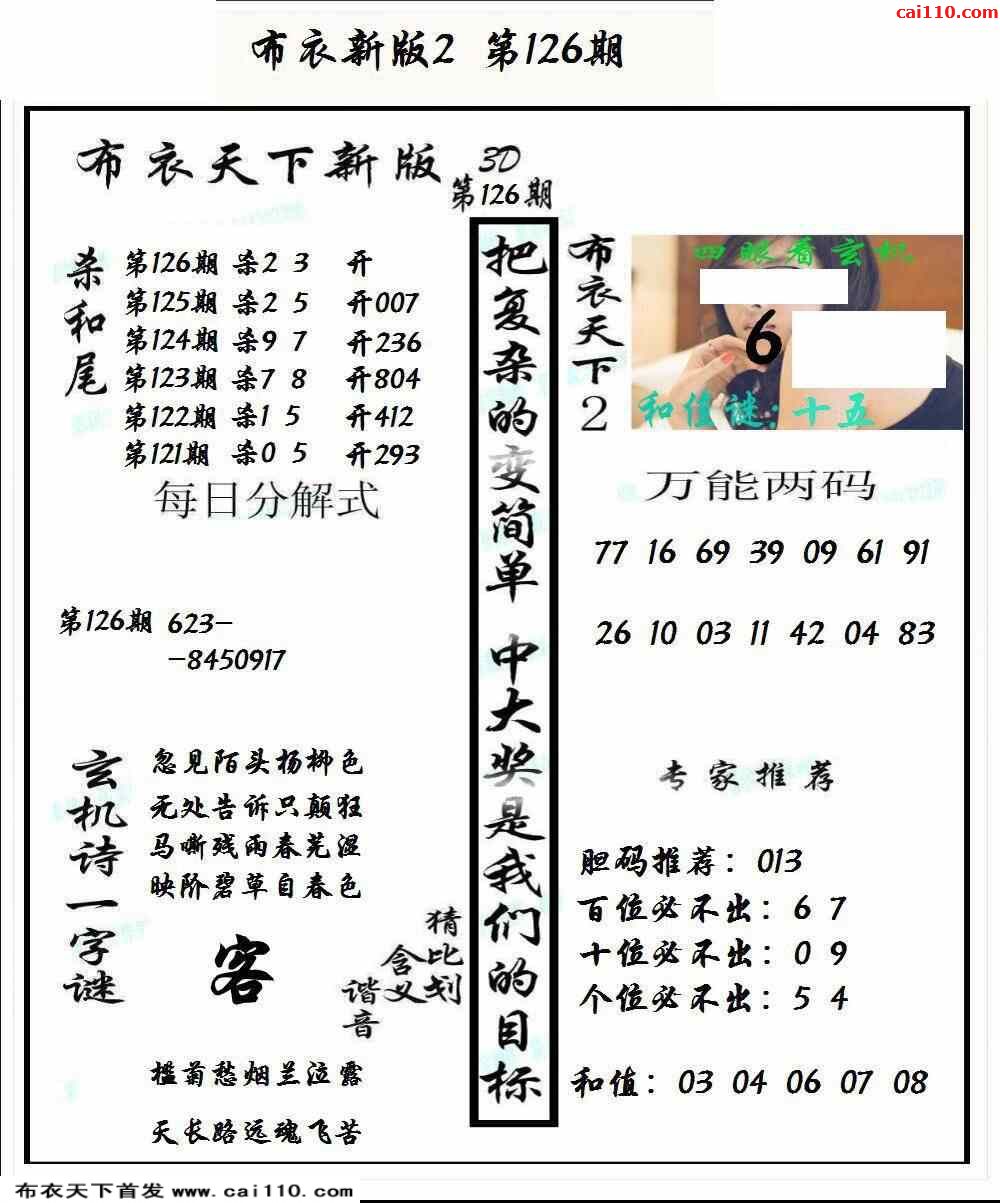 cai110.com
布衣新版2 第126期
布衣天下新版 3D
第126期
杀和尾
第126期 杀2 3 开
第125期 杀2 5 开007
第124期 杀9 7 开236
第123期 杀7 8 开804
第122期 杀1 5 开412
第121期 杀0 5 开293
每日分解式
第126期 623-
-8450917
玄机诗一字谜
忽见陌头杨柳色
无处告诉只颠狂
马嘶残雨春芜湿
映阶碧草自春色
客
猜比划
含义
谐音
槛菊愁烟兰泣露
天长路远魂飞苦
把复杂的变简单 中大奖是我们的目标
布衣天下2
四眼看玄机
6
和值谜:十五
万能两码
77 16 69 39 09 61 91
26 10 03 11 42 04 83
专家推荐
胆码推荐：013
百位必不出：6 7
十位必不出：0 9
个位必不出：5 4
和值：03 04 06 07 08
布衣天下首发 www.cai110.com